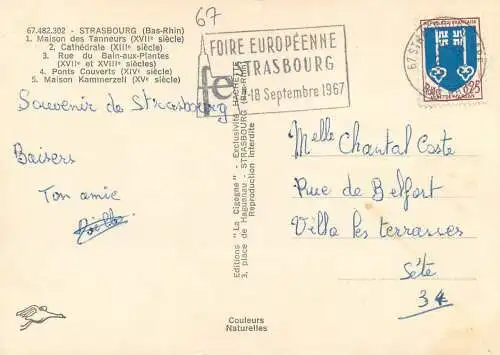 67
67.482.302 - STRASBOURG (Bas-Rhin)
1. Maison des Tanneurs (XVIIe siècle)
2. Cathédrale (XIIIe siècle)
3. Rue du Bain-aux-Plantes
(XVIe et XVIIe siècles)
4. Ponts Couverts (XIVe siècle)
5. Maison Kammerzell (XVe siècle)
FOIRE EUROPÉENNE
STRASBOURG
-18 Septembre 1967
fe
67 ST
RÉPUBLIQUE FRANÇAISE
0,25
MONT-DE-MARSAN
Souvenir de Strasbourg
Baisers
Ton amie
Editions "La Cigogne" - Exclusivité HACHETTE
3, place de Haguenau - STRASBOURG (Bas-Rhin)
Reproduction Interdite
Melle Chantal Coste
Rue de Belfort
Villa les terrasses
Sète
34
Couleurs
Naturelles